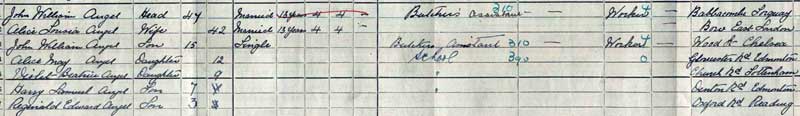 John William Angel Head 47 Married 13 years 4 4 - Butcher's assistant 310 - Worker Babbacombe Torquay
Alice Louisa Angel Wife 42 Married 13 years 4 4 - Bow East London
John William Angel Son 15 Single Butchers Assistant 310 - Worker Wood St Chelsea
Alice May Angel Daughter 12 School 390 0 Gloucester Rd Edmonton
Violet Beatrice Angel Daughter 9 " Church Rd Tottenham
Harry Samuel Angel Son 7 " Denton Rd Edmonton
Reginald Edward Angel Son 3 Oxford Rd Reading